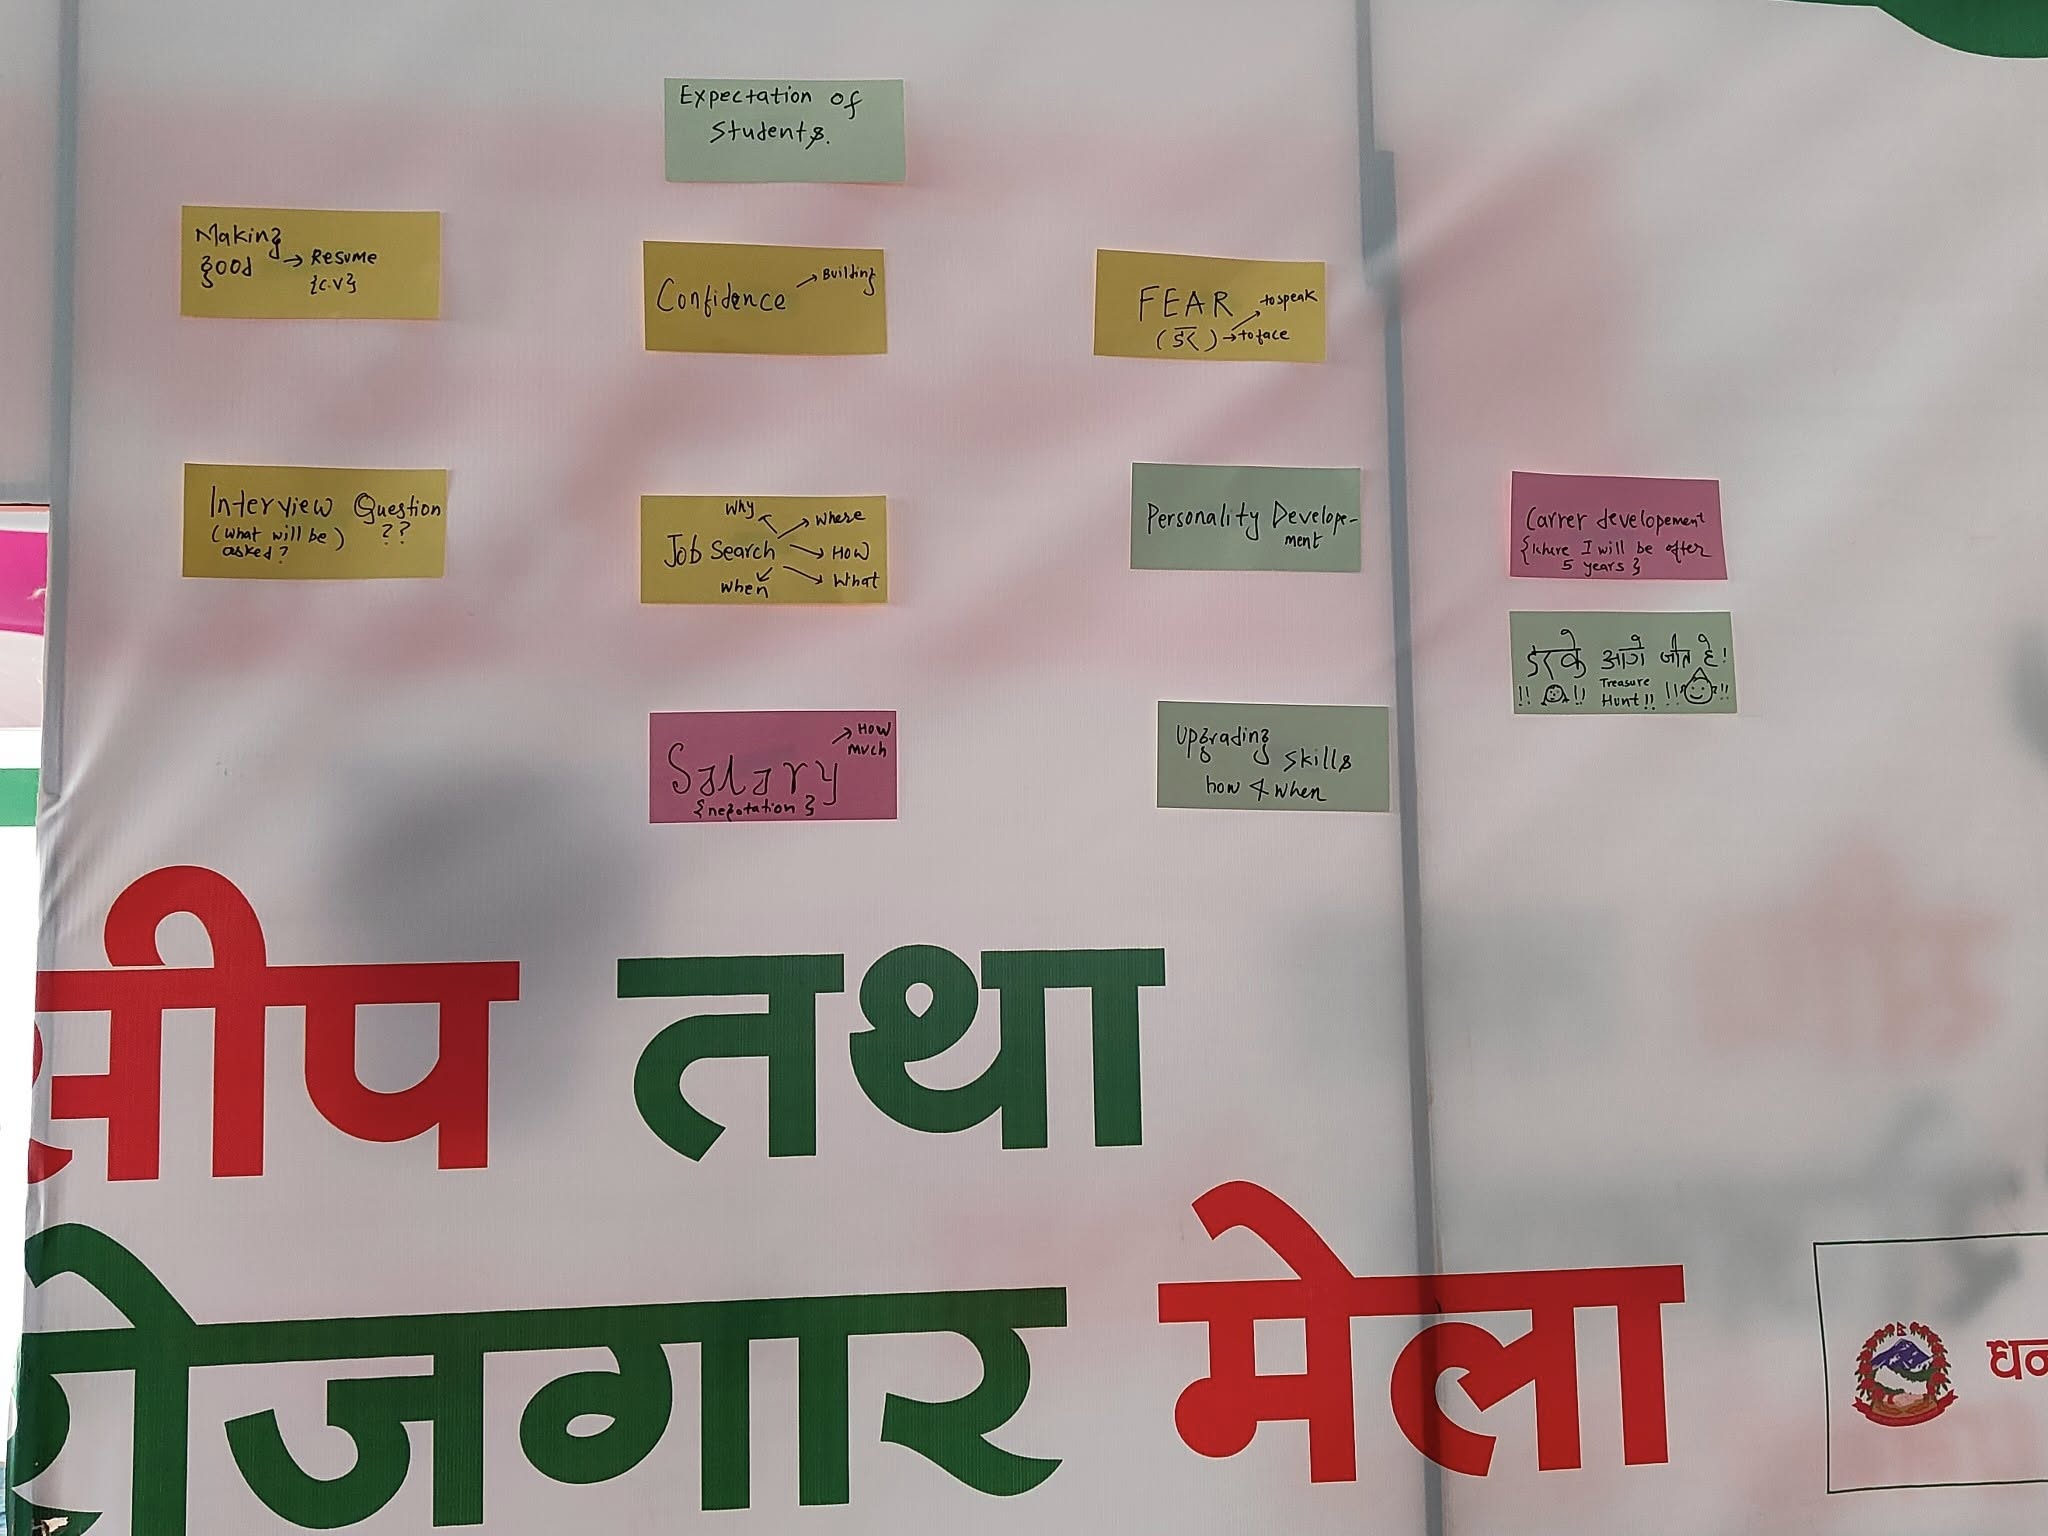 Expectation of
Students.
Making
good → Resume
{C.V}
Confidence → Building
FEAR → to speak
(डर) → to face
Interview Question
(What will be) ??
asked?
Why
Where
Job Search → How
When → What
Personality Develope-
ment
Carrer developement
{Where I will be after
5 years}
डरके आगे जीत है!
!! !! Treasure
Hunt!! !! !!
→ How
much
Salary
{negotation}
Upgrading
Skills
how & when
सीप तथा
रोजगार मेला